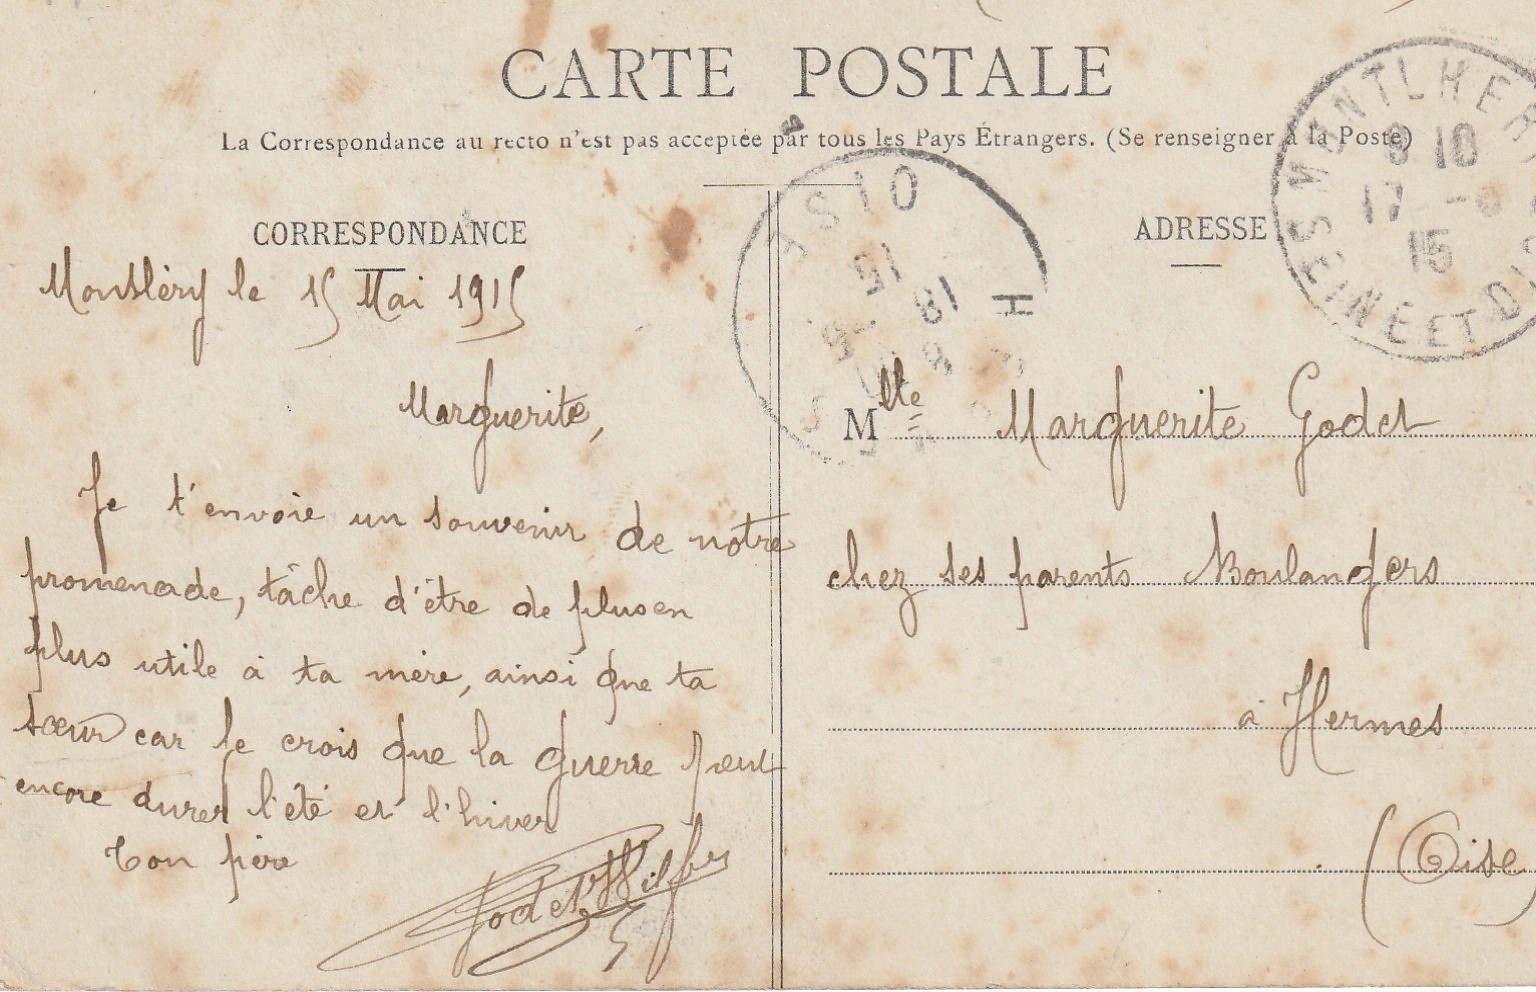 CARTE POSTALE
La Correspondance au recto n'est pas acceptée par tous les Pays Étrangers. (Se renseigner à la Poste)
CORRESPONDANCE
Montléry le 15 Mai 1915
Marguerite,
Je t'envoie un souvenir de notre
promenade, tâche d'être de plus en
plus utile à ta mère, ainsi que ta
sœur car je crois que la guerre peut
encore durer l'été et l'hiver
Ton père
Godet
ADRESSE
Mlle Marguerite Godet
chez ses parents Boulangers
à Hermes
(Oise)
MONTLHERY
8 10
17 -5
15
SEINE ET OISE
OISE
15
18 -5
H